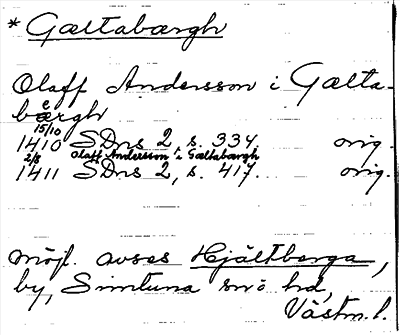 * Gæltabærgh
Olaff Andersson i Gælta-
bærgh
15/10
1410 SDns 2, s. 334. orig.
2/8 Olaff Andersson i Gæltabærgh
1411 SDns 2, s. 417. orig.
möjl. avses Hjältberga,
by, Simtuna sn o hd,
Västm. l.